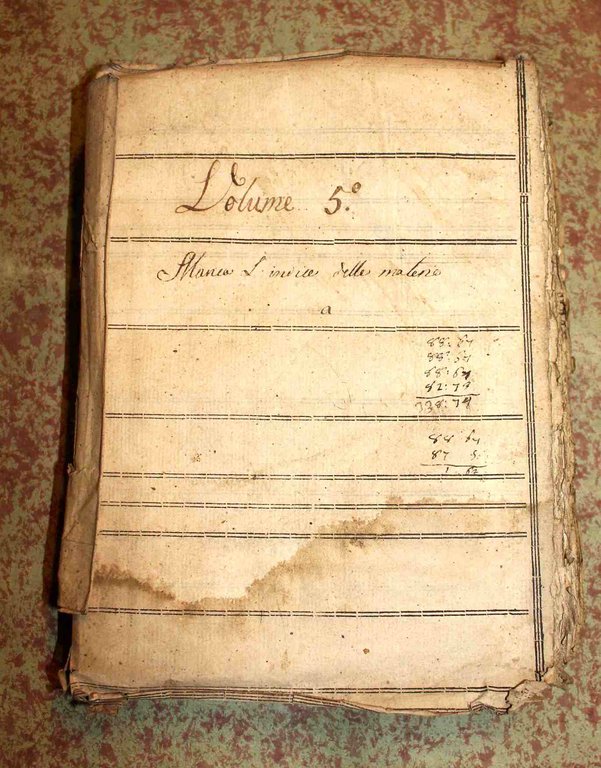 Volume 5.º
Manca L'indice delle materie
a
88:64
88:64
88:64
82:79
338:79
88 64
87
1 62